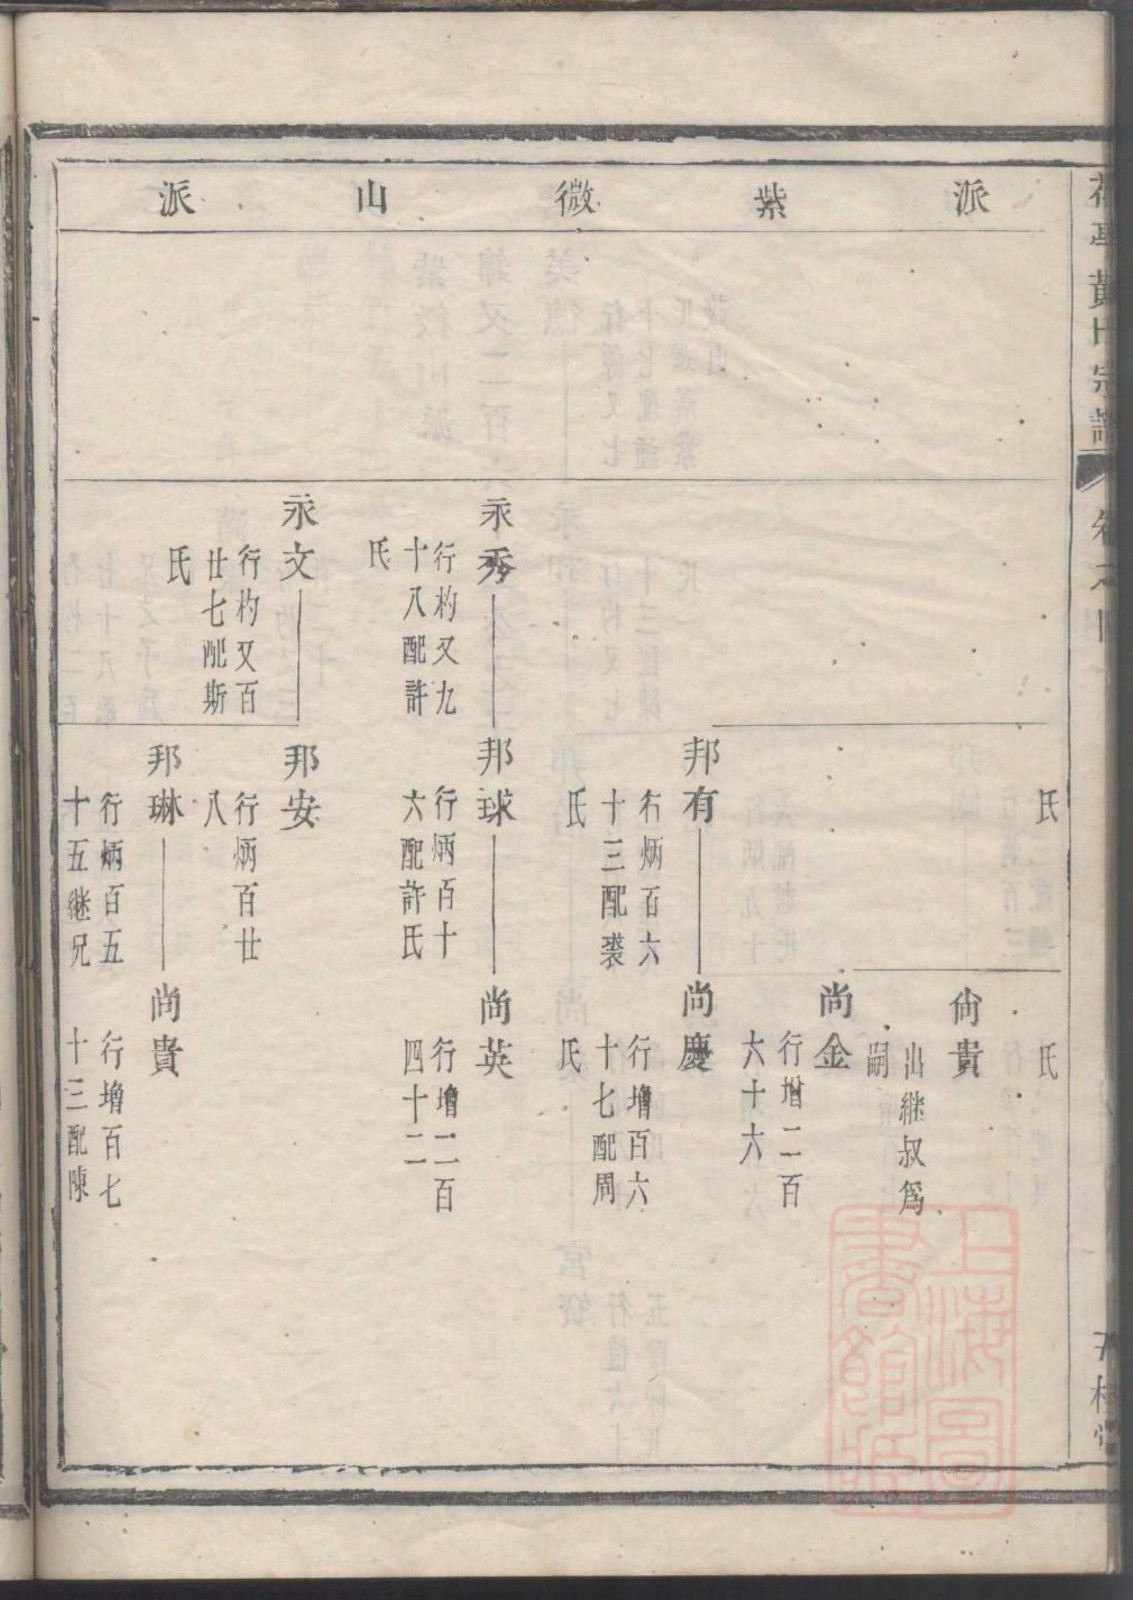 黃氏宗譜
派紫微山派
氏
氏
尚貴
出繼叔爲
嗣
尚金
行增二百
六十六
邦有
行炳百六
十三配裘
氏
尚慶
行增百六
十七配周
氏
永秀
行杓又九
十八配許
氏
邦球
行炳百十
六配許氏
尚英
行增二百
四十二
永文
行杓又百
廿七配斯
氏
邦安
行炳百廿
八
邦琳
行炳百五
十五繼兄
尚貴
行增百七
十三配陳
上海圖
書館藏